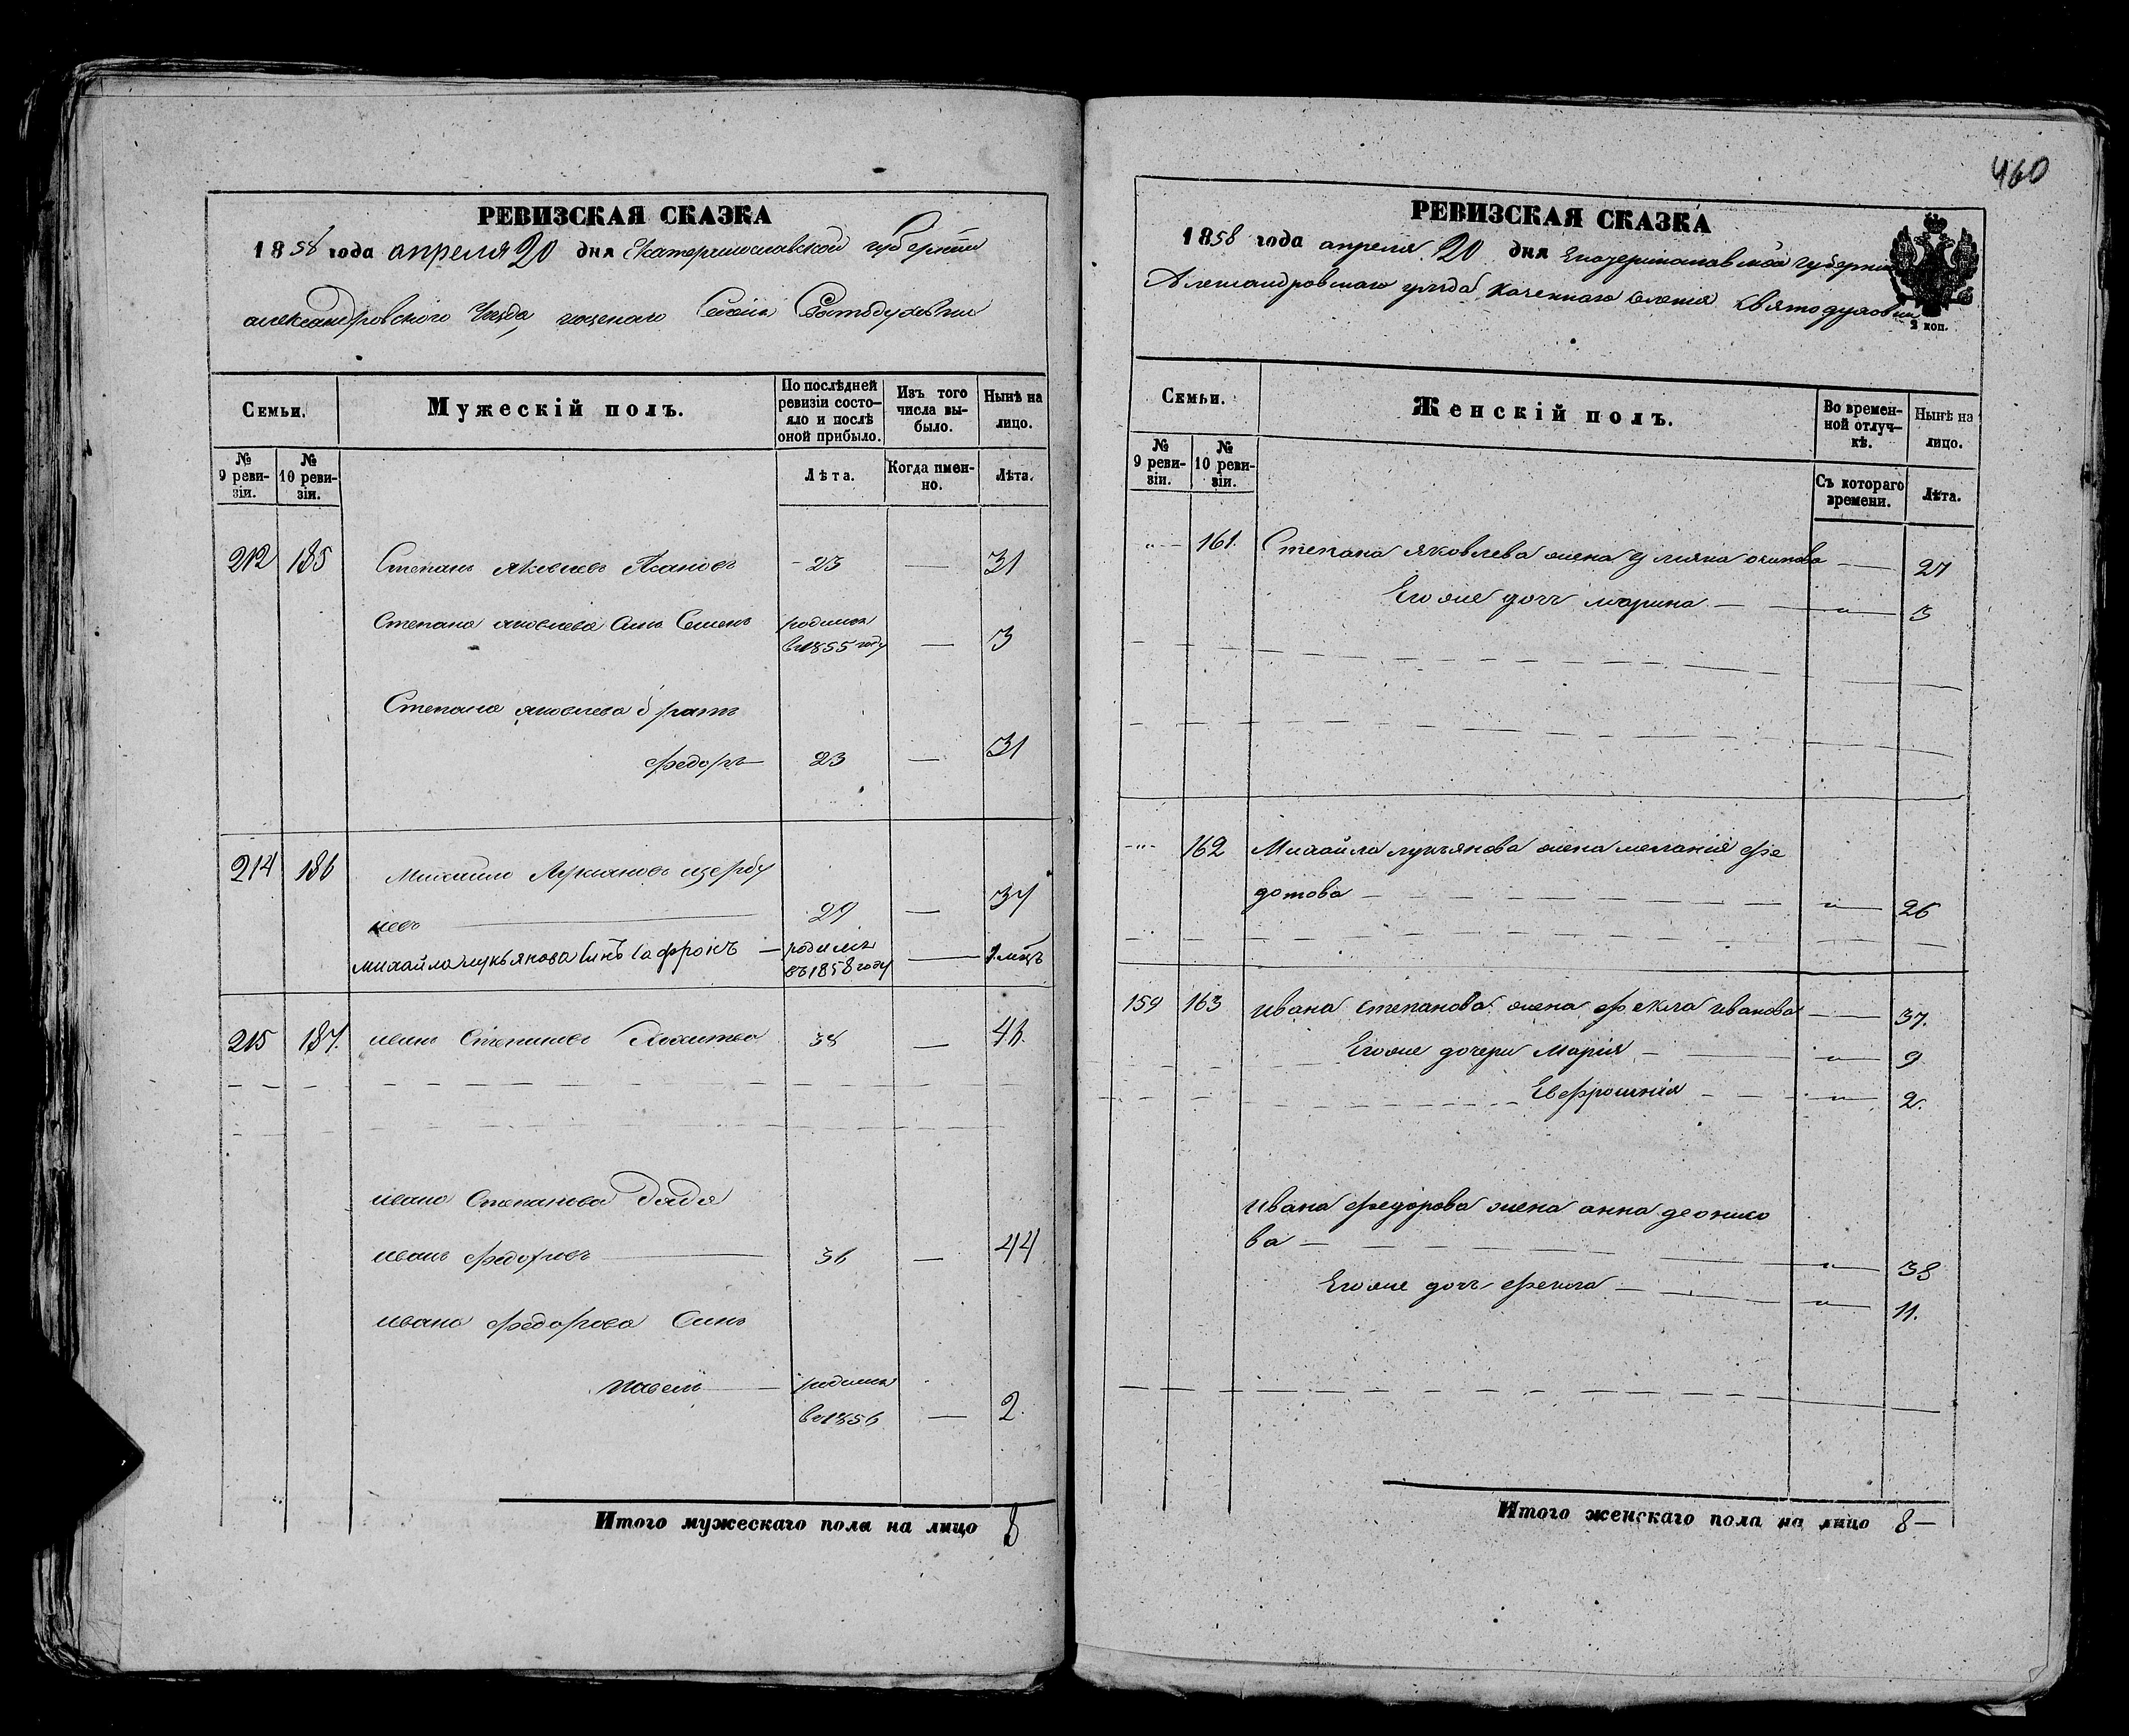 460
РЕВИЗСКАЯ СКАЗКА
1858 года апреля 20 дня Екатеринославской губерніи
александровского Уезда, Святодуховки
Семьи.
Мужескій полъ.
По послѣдней ревизіи состо-
яло и послѣ
оной прибыло.
Изъ того
числа вы-
было.
Нынѣ на
лицо.
№
9 реви-
зіи.
№
10 реви-
зіи.
Лѣта.
Когда имен-
но.
Лѣта.
212 185 Степанъ Яковлевъ 23 — 31
Степана яковлева Синъ Семенъ родился
въ 1855 году — 3
Степана яковлева братъ
федоръ — 23 — 31
214 186 Михайло Лукьяновъ щербу
29 — 37
михайла лукьянова Синъ Сафронъ — родился
въ 1858 году — 1 мѣц
215 187. иванъ Степановъ 38 — 46.
ивана Степанова дядя
иванъ федоровъ — 36 — 44
ивана федорова Синъ
павелъ — родился
въ 1856 — 2.
Итого мужескаго пола на лицо 8
РЕВИЗСКАЯ СКАЗКА
1858 года апреля 20 дня Екатеринославской губерніи
Александровскаго уезда казеннаго селенія Святодуховки
2 коп.
Семьи.
Женскій полъ.
Во времен-
ной отлуч-
кѣ.
Нынѣ на
лицо.
№
9 реви-
зіи.
№
10 реви-
зіи.
Съ котораго
времени.
Лѣта.
-"- 161. Степана яковлева жена улияна осипова — 27
Его же дочь марина — " — 3
-"- 162 Михайла лукъянова жена меланія фе
дотова — " — 26
159 163 Ивана степанова жена фекла иванова — 37.
Его же дочери Марія — " — 9
Евфросинія — " — 2.
Ивана федорова жена анна
ва — " — 38
Его же дочь фекла — " — 11.
Итого женскаго пола на лицо 8 —